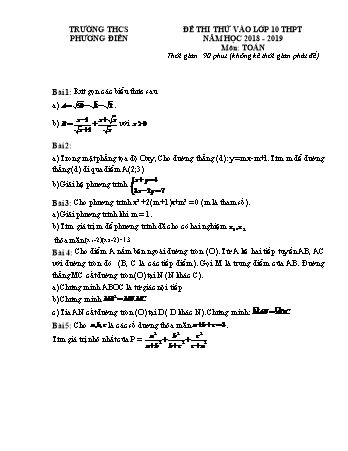 TRƯỜNG THCS
PHƯƠNG ĐIỀN
ĐỀ THI THỬ VÀO LỚP 10 THPT
NĂM HỌC 2018 - 2019
Môn: TOÁN
Thời gian 90 phút (không kể thời gian phát đề)
Bài 1: Rút gọn các biểu thức sau
a)
b) với x>0
Bài 2:
a) Trong mặt phẳng tọa độ Oxy, Cho đường thẳng (d): y=mx-m+1. Tìm m để đường
thẳng (d) đi qua điểm A(2;3)
b) Giải hệ phương trình
Bài 3: Cho phương trình x² +2(m+1)x+m² = 0 (m là tham số).
a) Giải phương trình khi m = 1.
b) Tìm giá trị m để phương trình đã cho có hai nghiệm x₁, x₂
thỏa mãn
Bài 4: Cho điểm A nằm bên ngoài đường tròn (O). Từ A kẻ hai tiếp tuyến AB, AC
với đường tròn đó (B, C là các tiếp điểm). Gọi M là trung điểm của AB. Đường
thẳng MC cắt đường tròn (O) tại N (N khác C).
a) Chứng minh ABOC là tứ giác nội tiếp
b) Chứng minh MB² = MN.MC
c) Tia AN cắt đường tròn (O) tại D ( D khác N). Chứng minh:
Bài 5: Cho a,b,c là các số dương thỏa mãn a+b+c=3.
Tìm giá trị nhỏ nhất của P =